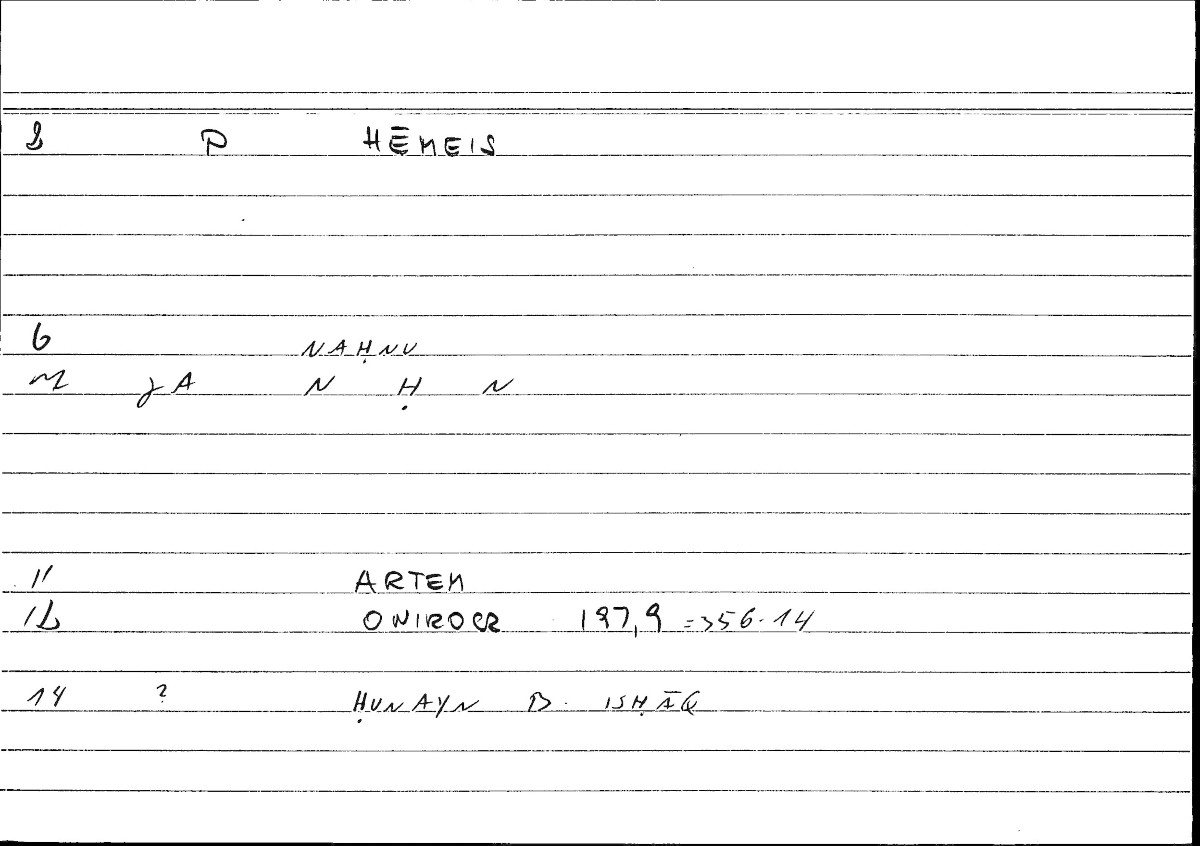 P HĒMEIS
6 NAḤNU
JA N Ḥ N
11 ARTEM
12 ONIROCR 197,9 =356.14
14 ? ḤUNAYN B. ISḤĀQ